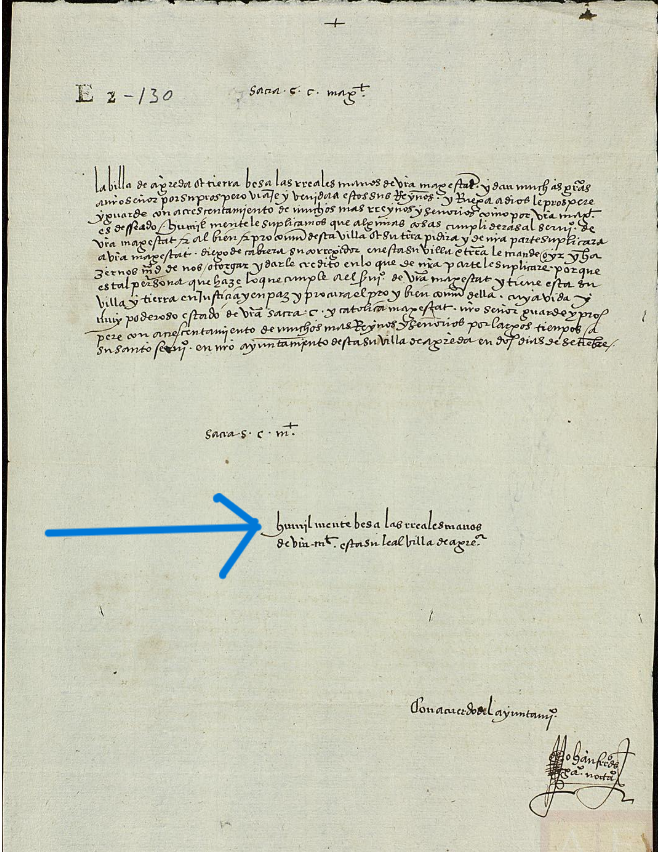 +
E 2-130
Sacra. S. c. magt.
la billa de agreda et tierra besa las rreales manos de vra magestat. y dan muchas gras
a nro señor por su prospero viaje y venida a estos sus Reynos. y Ruega a dios le prospere
y guarde con acrescentamiento de muchos mas rreynos y señorios como por vra magt.
es desseado. humilmente le suplicamos que algunas cosas cumplideras al servi. de
vra magestat z al bien z pro comun desta villa et su trra pidira y de nra parte suplicara
a vra magestat. diego de cabrera su corregidor en esta su villa z trra le mande oyr y ha
zernos md de nos otorgar y darle credito en lo que de nra parte suplicare. porque
es tal persona que haze lo que cumple a el servi. de vra magestat y tiene esta su
villa y tierra en Justicia y en paz y procura el pro y bien comun della. cuya vida y
muy poderoso estado de vra Sacra c. y catolica magestat. nro señor guarde y pros
pere con acrescentamiento de muchos mas Reynos y señorios por largos tienpos a
su santo servi. en nro ayuntamiento desta su villa de agreda en dos dias de setienbre
Sacra S. c. mt.
humilmente besa las rreales manos
de vra mt. esta su leal villa de agreda
Con acuerdo del ayuntami.
Johan